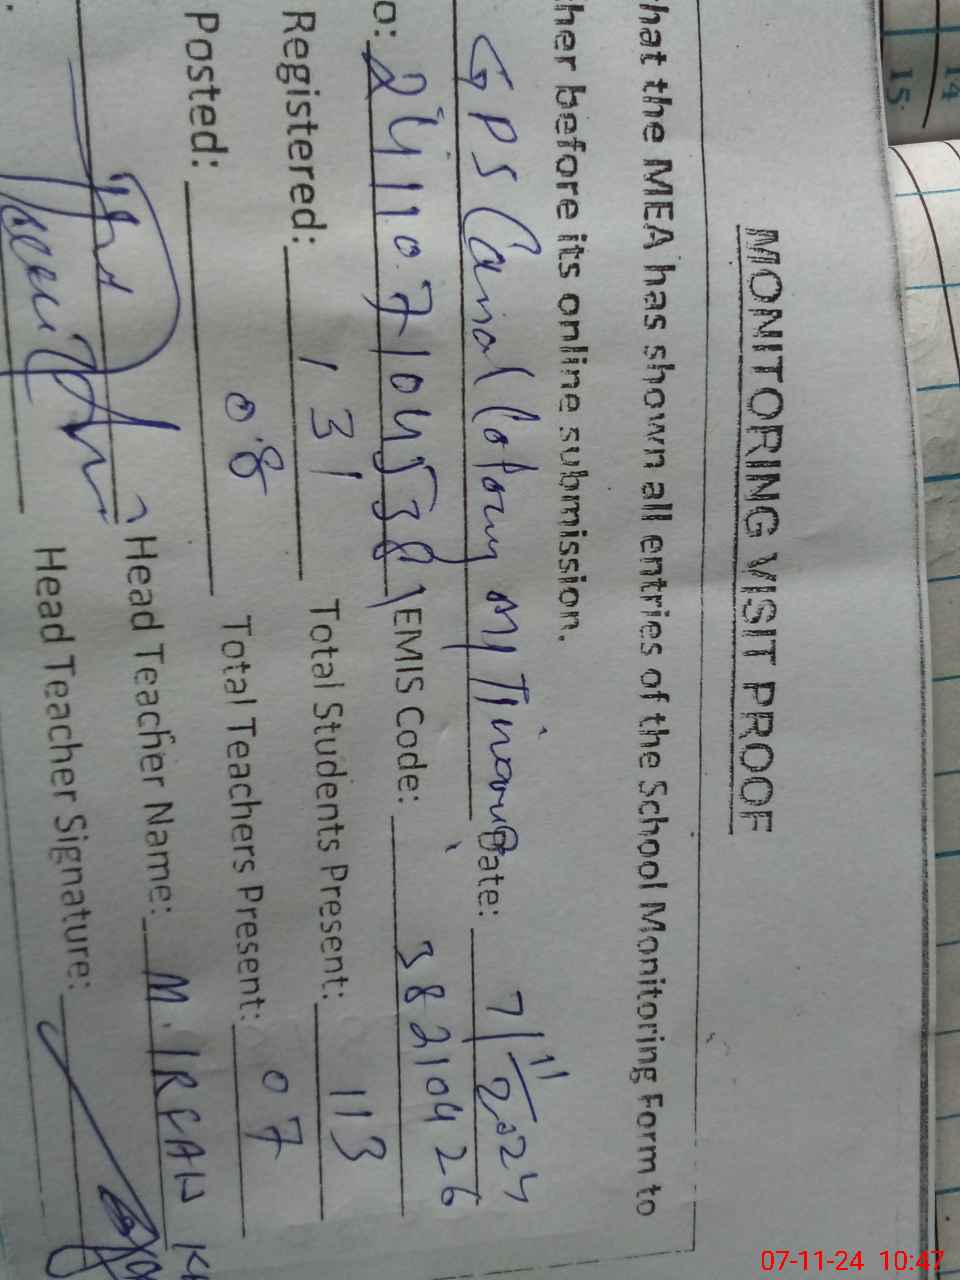 14
15
MONITORING VISIT PROOF
hat the MEA has shown all entries of the School Monitoring Form to
her before its online submission.
GPS Canal Colony M Date: 7/11/2024
o: 24110710453 EMIS Code: 38210426
Registered: 131 Total Students Present: 113
Posted: 08 Total Teachers Present: 07
Head Teacher Name: M. IRFAN
Head Teacher Signature:
07-11-24 10:47